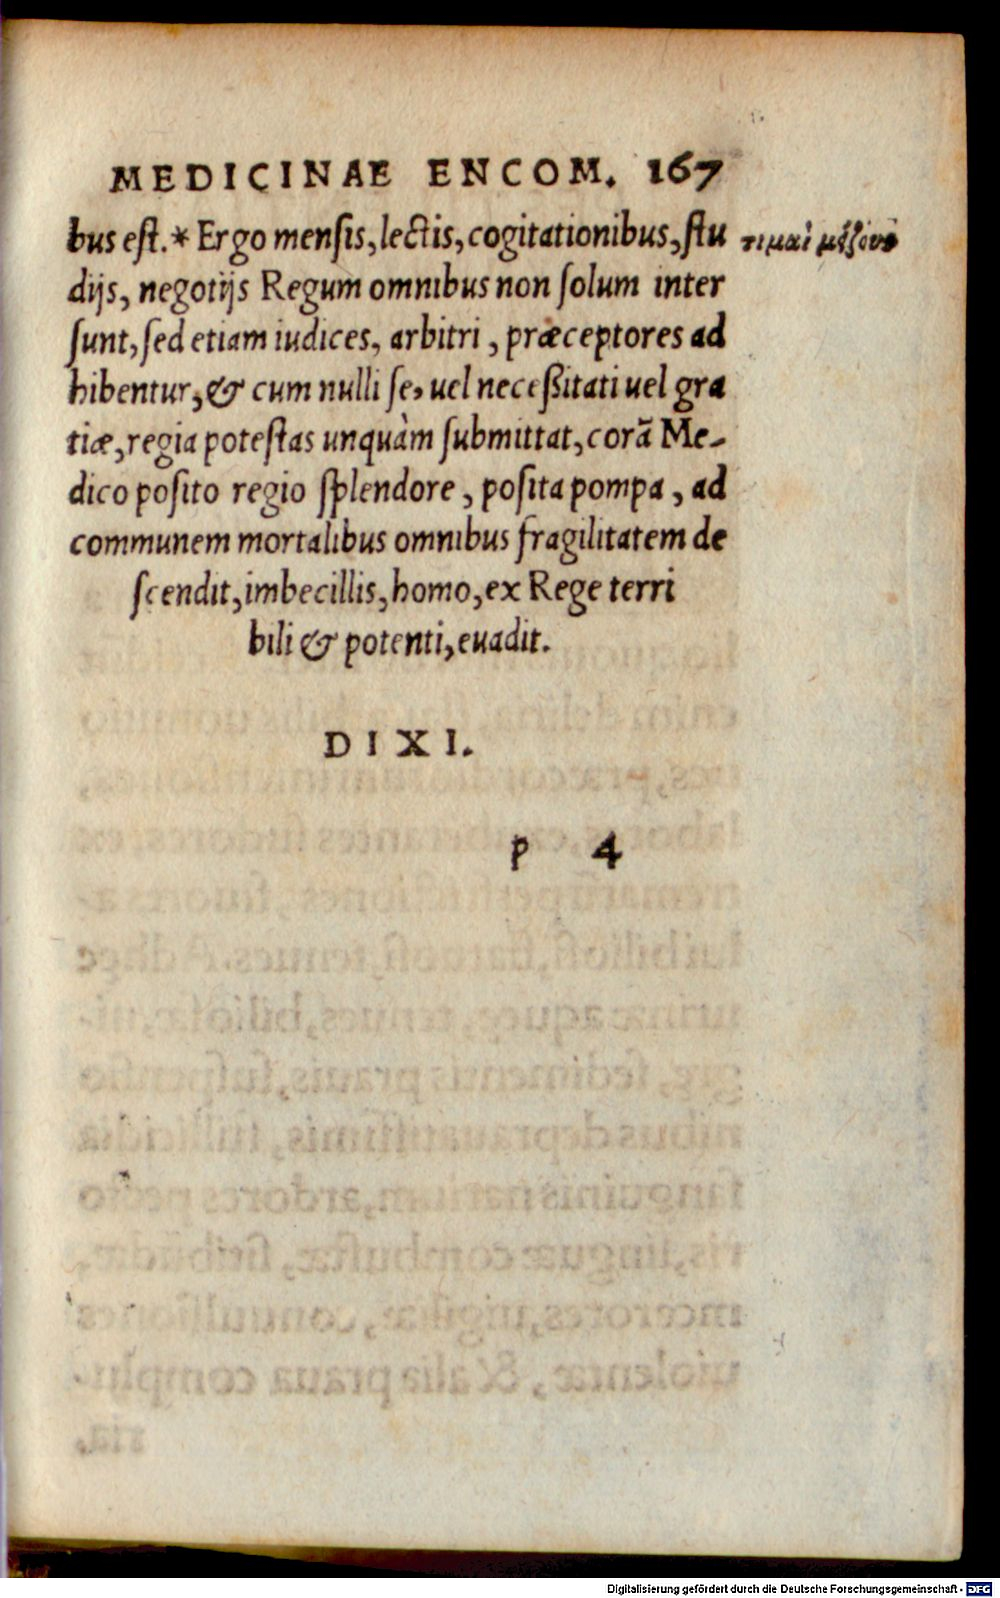 MEDICINAE ENCOM. 167
bus eſt.* Ergo menſis, lectis, cogitationibus, ſtu
dijs, negotijs Regum omnibus non ſolum inter
ſunt, ſed etiam iudices, arbitri, præceptores ad
hibentur, & cum nulli ſe, uel neceßitati uel gra
tiæ, regia poteſtas unquàm ſubmittat, corã Me-
dico poſito regio ſplendore, poſita pompa, ad
communem mortalibus omnibus fragilitatem de
ſcendit, imbecillis, homo, ex Rege terri
bili & potenti, euadit.
τιμαὶ
DIXI.
p 4
Digitalisierung gefördert durch die Deutsche Forschungsgemeinschaft - DFG